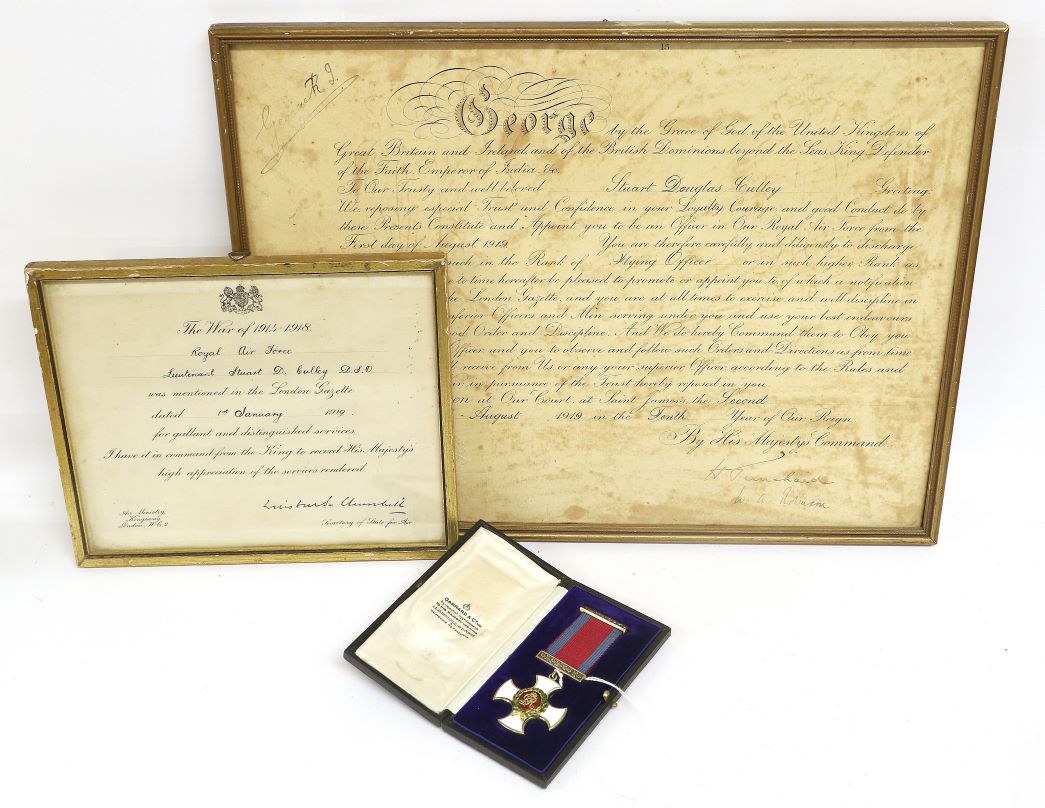 15
George R.I.
George by the Grace of God, of the United Kingdom of
Great Britain and Ireland, and of the British Dominions beyond the Seas, King, Defender
of the Faith, Emperor of India, &c.
To Our Trusty and well beloved Stuart Douglas Culley Greeting:
We, reposing especial Trust and Confidence in your Loyalty, Courage and good Conduct, do by
these Presents Constitute and Appoint you to be an Officer in Our Royal Air Force from the
First day of August 1919. You are therefore carefully and diligently to discharge
such in the Rank of Flying Officer or in such higher Rank as
to time hereafter be pleased to promote or appoint you to, of which a notification
London Gazette, and you are at all times to exercise and well discipline in
Officers and Men serving under you and use your best endeavours
Order and Discipline. And We do hereby Command them to Obey you
Officer and you to observe and follow such Orders and Directions as from time
receive from Us or any your superior Officer according to the Rules and
in pursuance of the Trust hereby reposed in you.
at Our Court, at Saint James's, the Second
August 1919 in the Tenth Year of Our Reign
By His Majesty's Command.
H Trenchard
W. A. Robinson
The War of 1914-1918.
Royal Air Force
Lieutenant Stuart D. Culley D.S.O
was mentioned in the London Gazette
dated 1st January 1919.
for gallant and distinguished services
I have it in command from the King to record His Majesty's
high appreciation of the services rendered.
Winston S. Churchill
Secretary of State for Air
Air Ministry,
Kingsway,
London, W.C.2
GARRARD & Co LTD